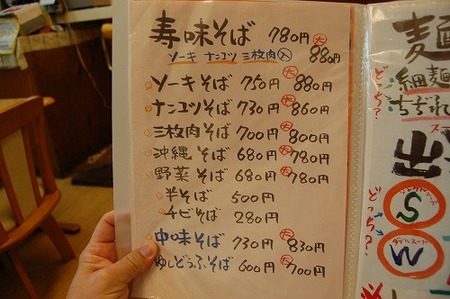 寿味そば 780円
ソーキ ナンコツ 三枚肉 大 880円
ソーキそば 750円 大 880円
ナンコツそば 730円 大 860円
三枚肉そば 700円 大 800円
沖縄そば 680円 大 780円
野菜そば 680円 大 780円
半そば 500円
チビそば 280円
中味そば 730円 大 830円
ゆしどうふそば 600円 大 700円
麺
どっち?
細麺
ちぢれ
出
どっち?
S
W